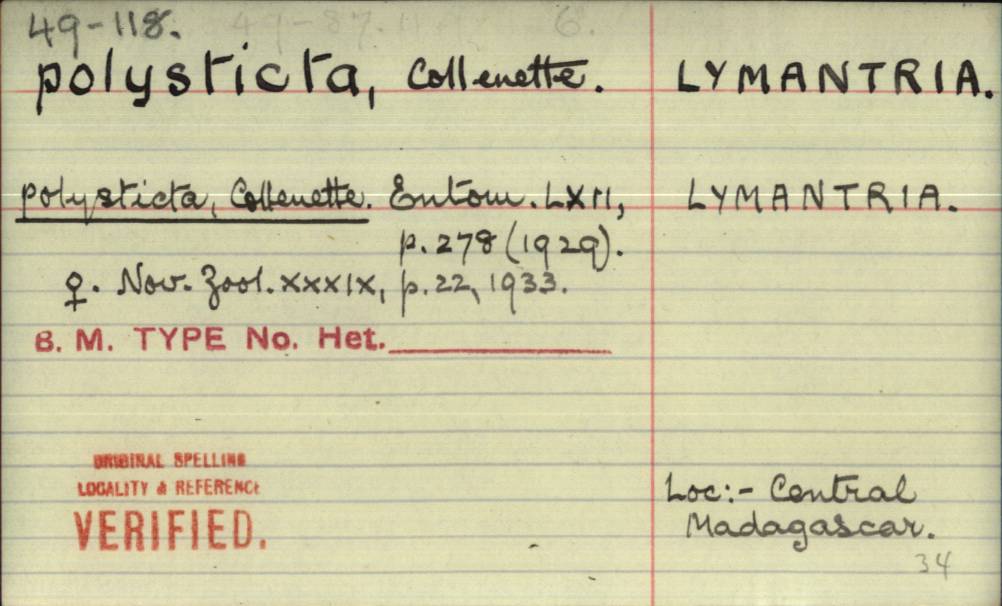 49-118.
polysticta, Collenette. LYMANTRIA.
polysticta, Collenette. Entom. LXII, LYMANTRIA.
p. 278 (1929).
♀. Nov. Zool. XXXIX, p. 22, 1933.
B. M. TYPE No. Het.
ORIGINAL SPELLING
LOCALITY & REFERENCE
VERIFIED.
Loc:- Central
Madagascar.
34